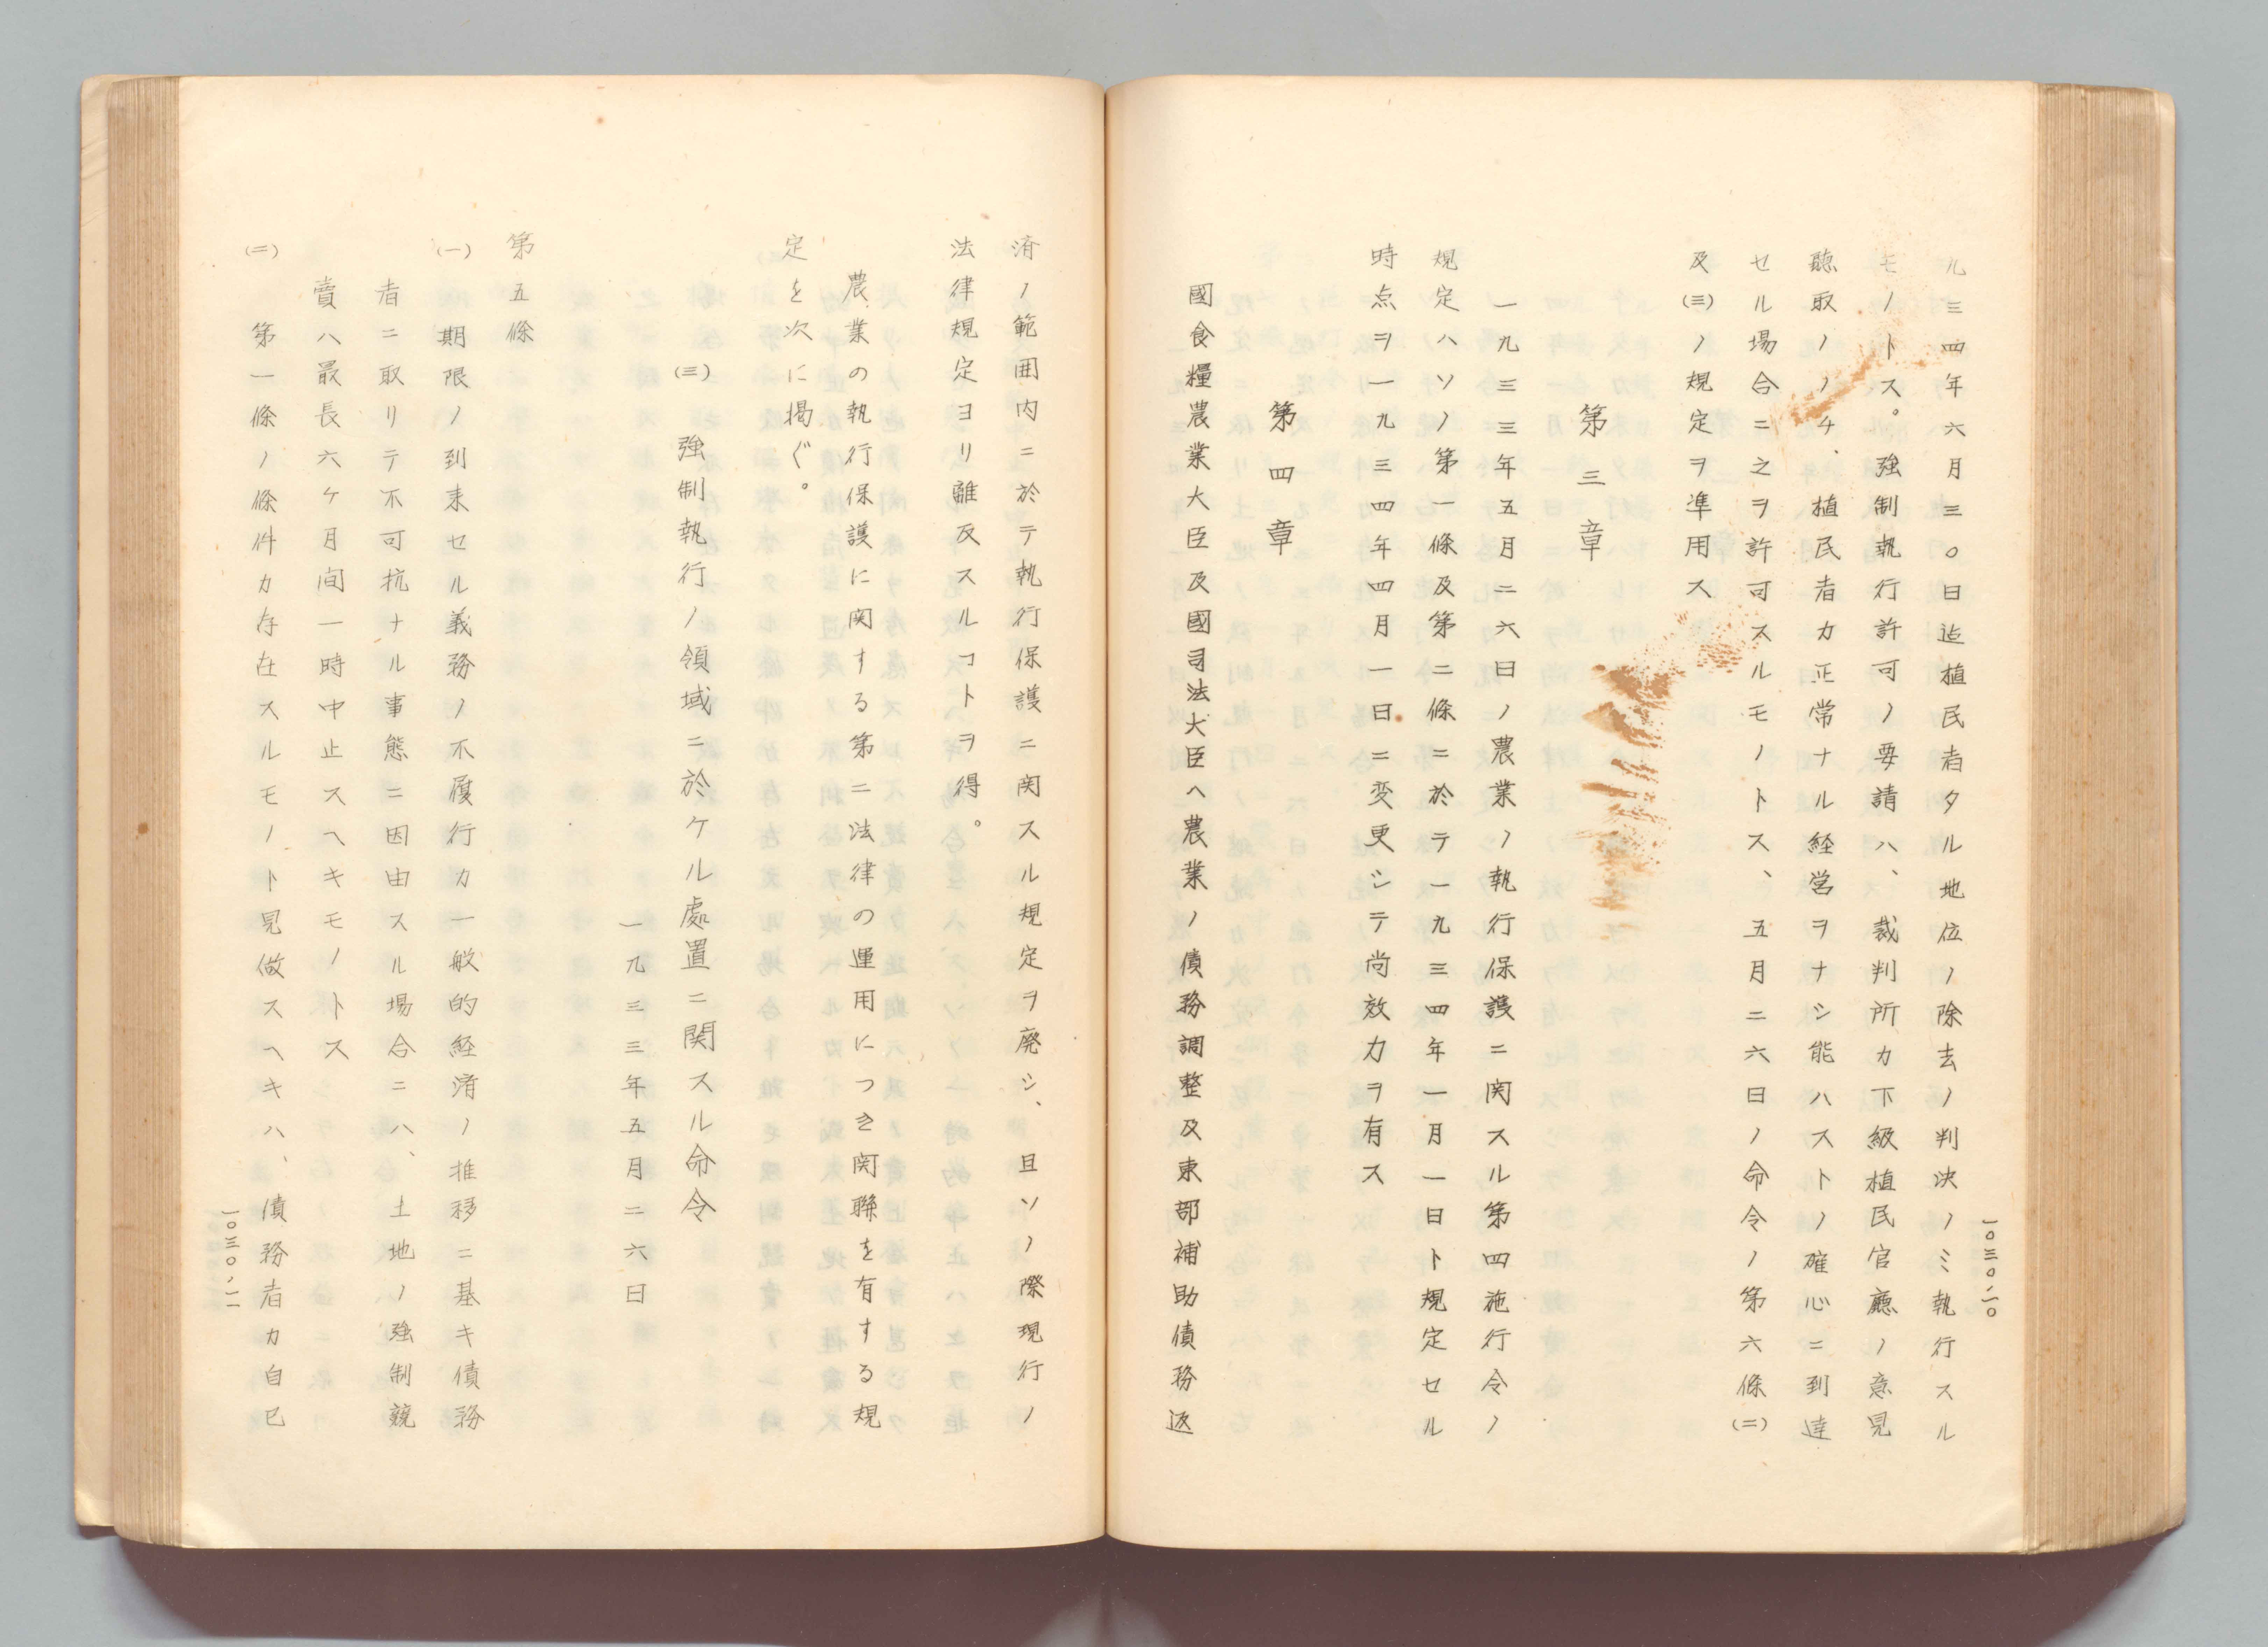 九三四年六月三〇日迄植民者タル地位ノ除去ノ判決ノミ執行スル
モノトス。強制執行許可ノ要請ハ、裁判所カ下級植民官廳ノ意見
聽取ノノチ、植民者カ正常ナル経営ヲナシ能ハストノ確心ニ到達
セル場合ニ之ヲ許可スルモノトス、五月二六日ノ命令ノ第六條(二)
及(三)ノ規定ヲ準用ス
第三章
一九三三年五月二六日ノ農業ノ執行保護ニ関スル第四施行令ノ
規定ハソノ第一條及第二條ニ於テ一九三四年一月一日ト規定セル
時点ヲ一九三四年四月一日ニ変更シテ尚效力ヲ有ス
第四章
國食糧農業大臣及國司法大臣ヘ農業ノ債務調整及東部補助債務返
一〇三〇、一〇
済ノ範囲内ニ於テ執行保護ニ関スル規定ヲ廃シ、且ソノ際現行ノ
法律規定ヨリ離反スルコトヲ得。
農業の執行保護に関する第二法律の運用につき関聯を有する規
定を次に掲ぐ。
(三) 強制執行ノ領域ニ於ケル處置ニ関スル命令
一九三三年五月二六日
第五條
(一) 期限ノ到来セル義務ノ不履行カ一般的経済ノ推移ニ基キ債務
者ニ取リテ不可抗ナル事態ニ因由スル場合ニハ、土地ノ強制競
賣ハ最長六ケ月間一時中止スヘキモノトス
(二) 第一條ノ條件カ存在スルモノト見做スヘキハ、債務者カ自己
一〇三〇、一一